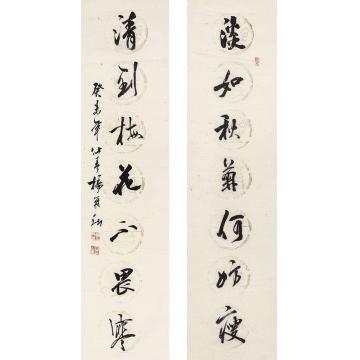 淡如秋菊何妨瘦
清到梅花不畏寒
癸未年